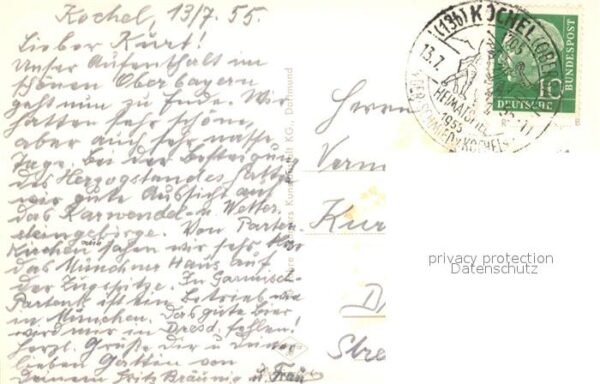 Kochel, 13/7. 55.
Lieber Kurt!
Unser Aufenthalt im
schönen Oberbayern
geht nun zu Ende. Wir
hatten sehr schöne,
aber auch sehr nasse
Tage, bei der Besteigung
des Herzogstandes hatten
wir gute Aussicht auf
das Karwendel- u. Wetter-
steingebirge. Von Parten-
Kirchen aus sahen wir sehr klar
das Münchner Haus auf
der Zugspitze. In Garmisch-
Partenk. ist ein Betrieb wie
in München. Das gute Bier
wird mir in Dresd. fehlen!
Herzl. Grüße dir u. deiner
lieben Gattin von
Deinem Fritz Bräunig u. Frau
Kunstanstalt KG., Dortmund
Herrn
Verm
Kur
D
Stre
(13b) KOCHEL (OBB)
13.7.
HEIMATSPIEL
1955
1705
SCHMIED V. KOCHEL
10
DEUTSCHE
BUNDESPOST
privacy protection
Datenschutz